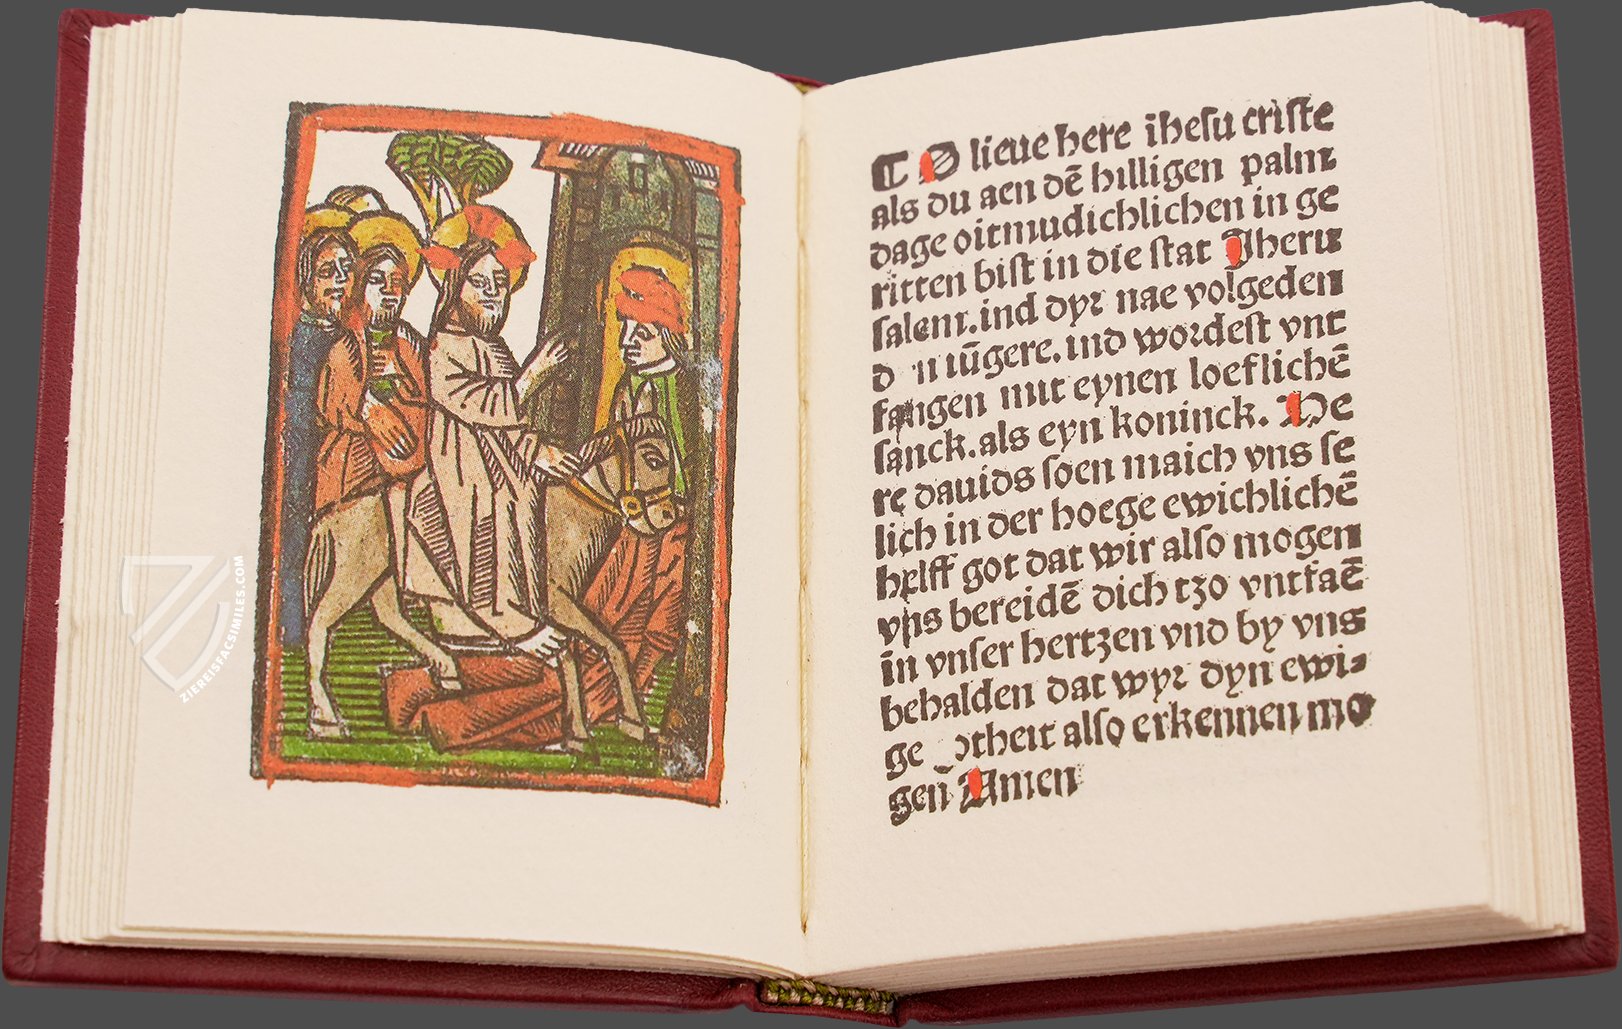 ¶ O lieue here ihesu criste
als du aen dē hilligen palm
dage oitmudichlichen in ge
ritten bist in die stat Jheru
salem. ind dyr nae volgeden
iūgere. ind wordest vnt
fangen mit eynen loeflichē
sanck. als eyn koninck. He
re dauids soen maich vns se
lich in der hoege ewichlichē
helff got dat wir also mogen
vns bereidē dich tzo vntfaē
in vnser hertzen vnd by vns
behalden dat wyr dyn ewi-
ge otheit also erkennen mo
gen̄ Amen
ZIEREISFACSIMILES.COM